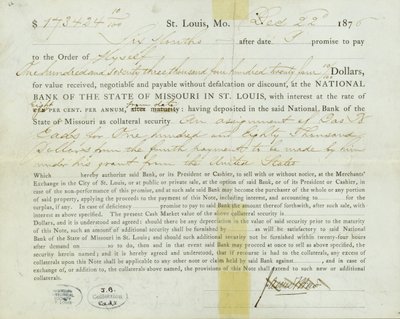 $ 173424 10/100 St. Louis, Mo. Dec 22d 1876
Six Months after date I promise to pay
to the Order of Myself
One hundred and Seventy three thousand four hundred twenty four 10/100 Dollars,
for value received, negotiable and payable without defalcation or discount, at the NATIONAL
BANK OF THE STATE OF MISSOURI IN ST. LOUIS, with interest at the rate of
eight PER CENT. PER ANNUM, from date after maturity: having deposited in the said National Bank of the
State of Missouri as collateral security. An assignment of Jas B
Eads for One hundred and Eighty Thousand
Dollars from the fourth payment to be made by him
under his grant from the United States
Which hereby authorise said Bank, or its President or Cashier, to sell with or without notice, at the Merchants'
Exchange in the City of St. Louis, or at public or private sale, at the option of said Bank, or of its President or Cashier, in
case of the non-performance of this promise, and at such sale said Bank may become the purchaser of the whole or any portion
of said property, applying the proceeds to the payment of this Note, including interest, and accounting to for the
surplus, if any. In case of deficiency promise to pay to said Bank the amount thereof forthwith, after such sale, with
interest as above specified. The present Cash Market value of the above collateral security is
Dollars, and it is understood and agreed: should there be any depreciation in the value of said security prior to the maturity
of this Note, such an amount of additional security shall be furnished by as will be satisfactory to said National
Bank of the State of Missouri in St. Louis; and should such additional security not be furnished within twenty-four hours
after demand on so to do, then and in that event said Bank may proceed at once to sell as above specified, the
security herein named; and it is hereby agreed and understood, that if recourse is had to the collaterals, any excess of
collaterals upon this Note shall be applicable to any other note or claim held by said Bank against , and in case of
exchange of, or addition to, the collaterals above named, the provisions of this Note shall extend to such new or additional
collaterals.
MISSOURI
HISTORICAL
SOCIETY
J.B.
Collection